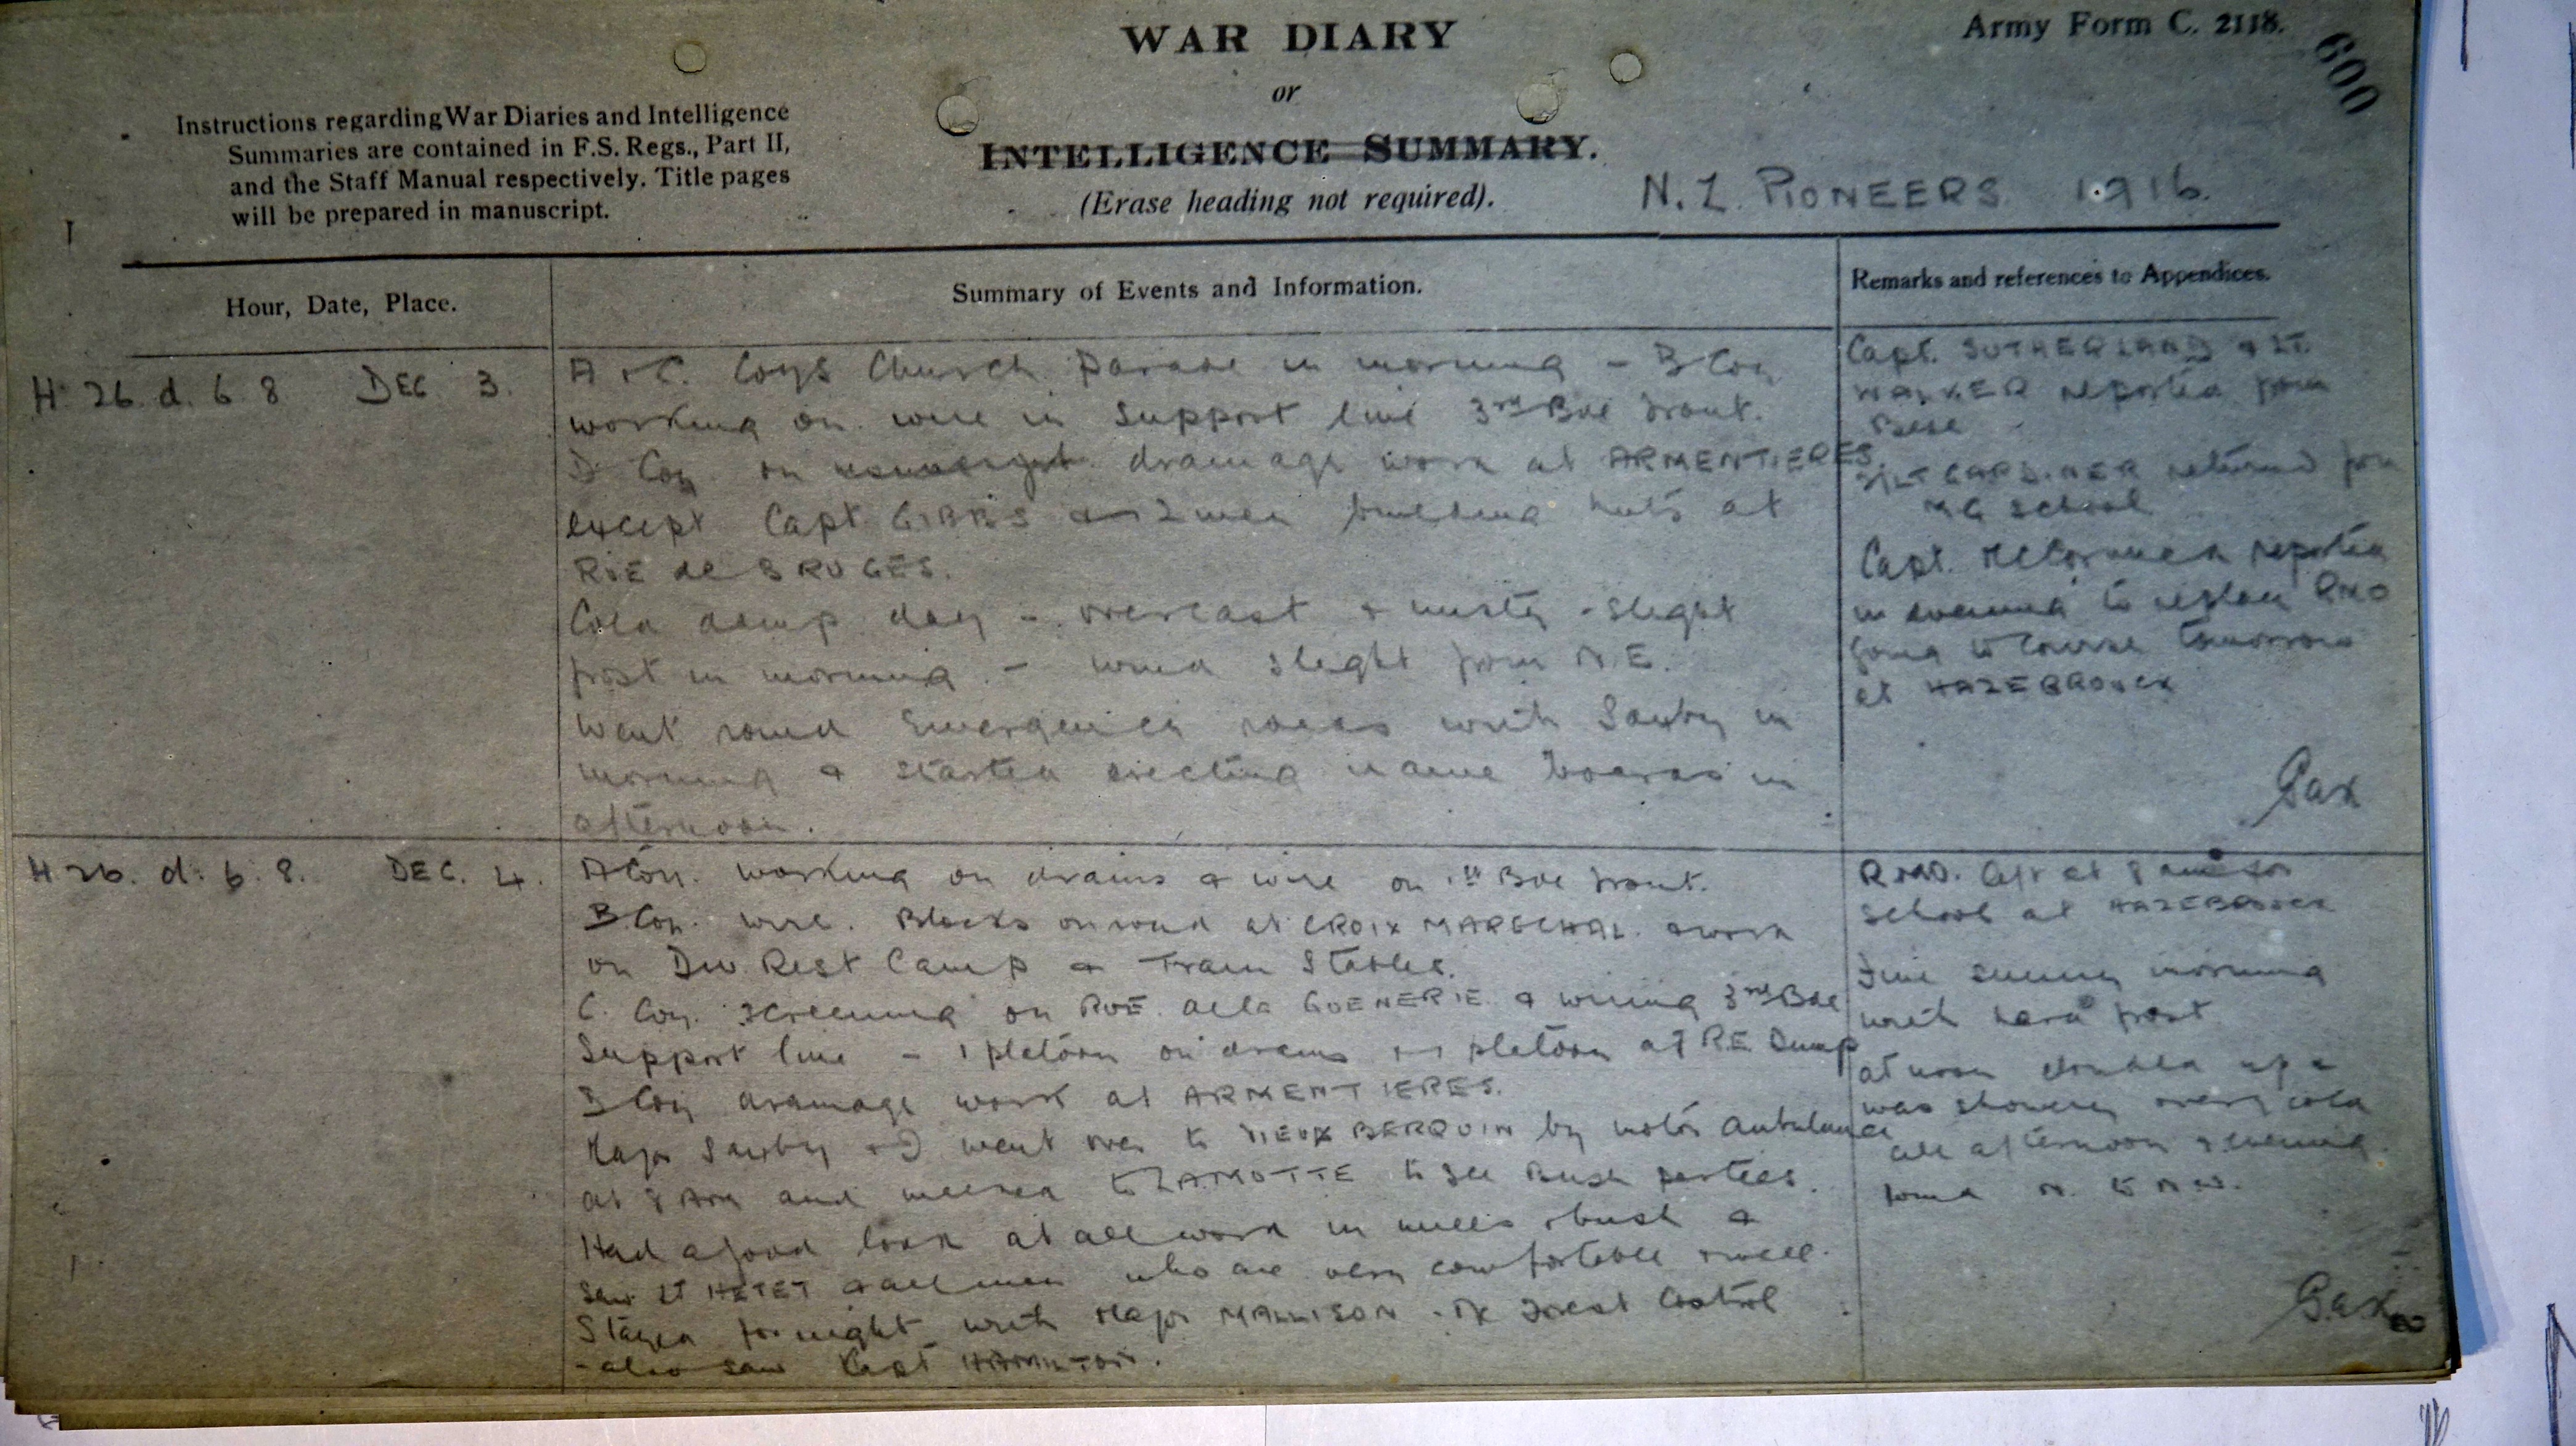 WAR DIARY
or
INTELLIGENCE SUMMARY.
(Erase heading not required).
Army Form C. 2118.
600
Instructions regarding War Diaries and Intelligence
Summaries are contained in F.S. Regs., Part II,
and the Staff Manual respectively. Title pages
will be prepared in manuscript.
N.Z. PIONEERS 1916.
Hour, Date, Place.
Summary of Events and Information.
Remarks and references to Appendices.
H 26. d. 6 8 DEC 3.
A & C. Coys Church parade in morning - B Coy
working on wire in support line 3rd Bde front.
D Coy on drainage work at ARMENTIERES
except Capt GIBBS & 12 men building huts at
RUE de BRUGES.
Cold damp day - overcast & misty - slight
frost in morning - wind slight from N.E.
Went round Emergency roads with Saxby in
morning & started erecting name boards in
afternoon.
Capt. SUTHERLAND & LT.
WALKER reported from
Base
2/LT GARDINER returned from
MG School
Capt. McCormack reported
in evening to replace RMO
going to course tomorrow
at HAZEBROUCK
Gax
H 26. d. 6. 8. DEC. 4.
A Coy. working on drains & wire on 1st Bde front.
B Coy. wire. Blocks on road at CROIX MARECHAL & work
on Div. Rest Camp & Train Stables.
C. Coy. screening on RUE de la GUENERIE & wiring 3rd Bde
Support line - 1 platoon on drains & 1 platoon at R.E. Dump
D Coy drainage work at ARMENTIERES.
Major Saxby & I went over to VIEUX BERQUIN by motor ambulance
at 8 AM and walked to LAMOTTE to see Bush parties.
Had a good look at all work in mills & bush &
saw LT HETET & all men who are very comfortable & well.
Stayed for night with Major MALLISON - OC Forest Control
- also saw Capt HAMILTON.
RMO. left at 8 am for
School at HAZEBROUCK
Fine sunny morning
with hard frost
at noon clouded up &
was showery & very cold
all afternoon & evening.
Wind N. to N.W.
Gax